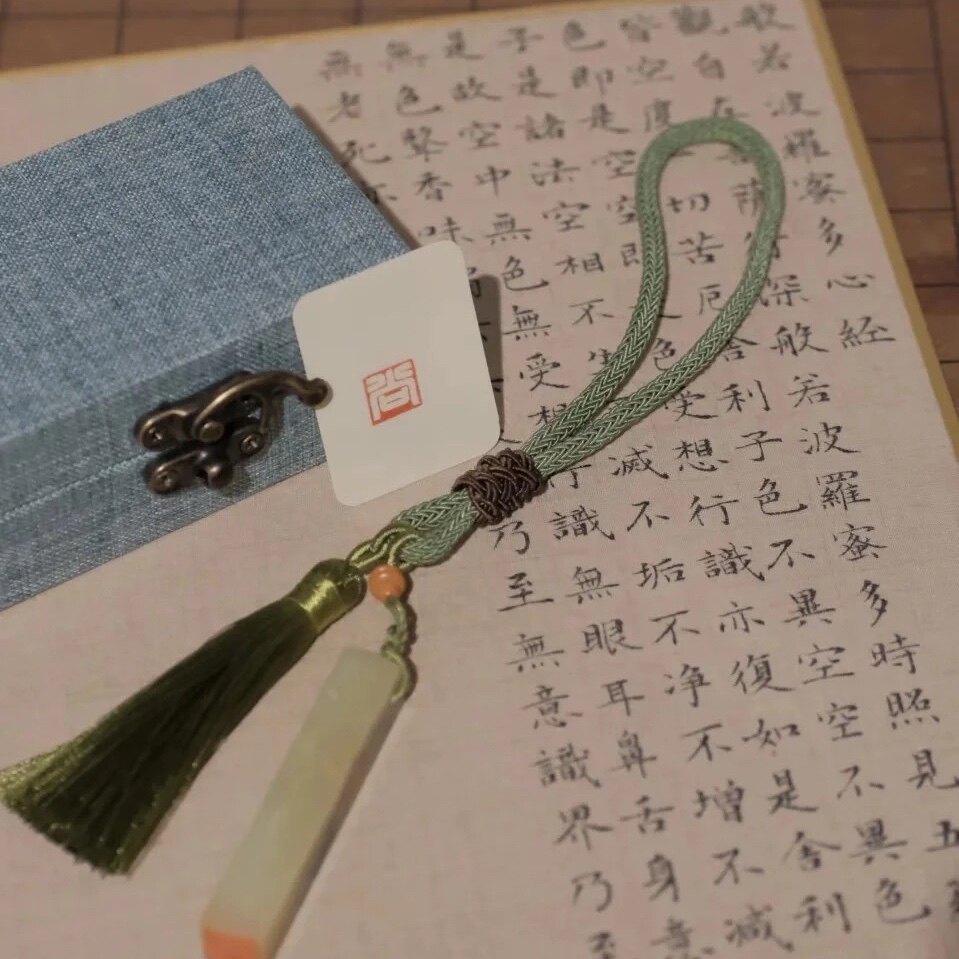 般若波羅蜜多心經
觀自在薩行深般若波羅蜜多時照見五
皆空度一切苦厄舍利子色不異空空不異色
色即是空空即色受想行識亦復如是舍利
子是諸法空相不生滅不垢不净不增不減
是故空中無色無受想行識無眼耳鼻舌身意
無色聲香味乃至無意識界乃至
無老死亦
尚